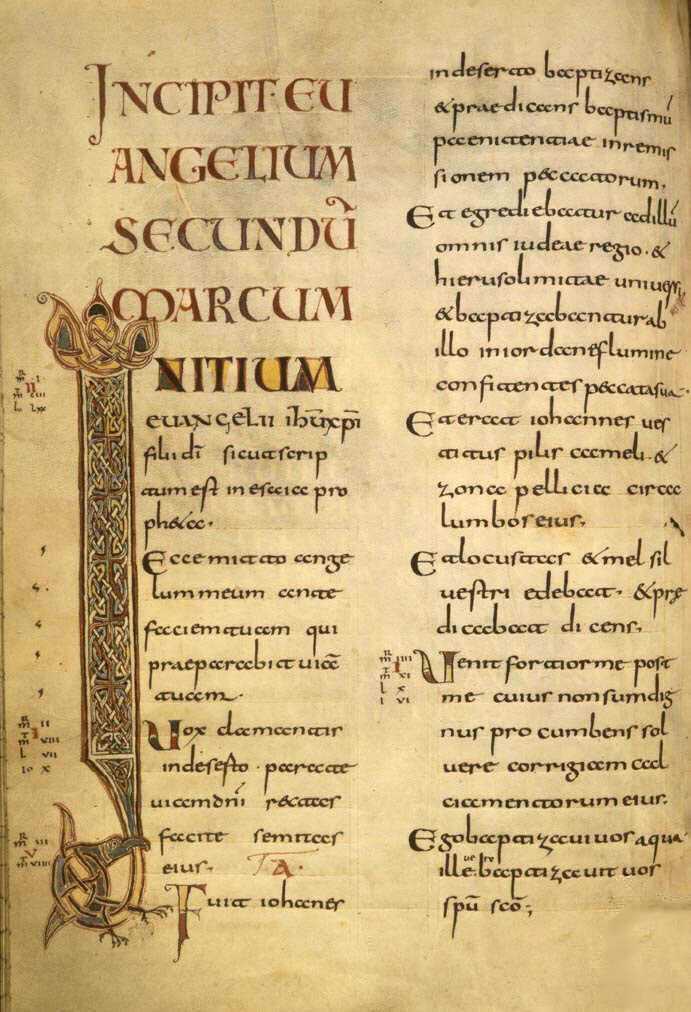 INCIPIT EU
ANGELIUM
SECUNDŪ
MARCUM
INITIUM
euangelii ihū xpī
filii dī sicut scrip
tum est in esaia pro
pheta·
Ecce mitto ange
lum meum ante
faciem tuam qui
praeparabit uiā
tuam·
Uox clamantis
in deserto · parate
uiam dnī rectas
facite semitas
eius· TA·
Fuit iohannes
in deserto baptizans
& praedicans baptismū
paenitentiae in remis
sionem peccatorum·
Et egrediebatur ad illū
omnis iudeae regio · &
hierusolimitae uniuersi
& baptizabantur ab
illo in iordane flumine
confitentes peccata sua·
Et erat iohannes ues
titus pilis cameli · &
zona pellicia circa
lumbos eius·
Et locustas & mel sil
uestri edebat · & prę
dicabat dicens·
Uenit fortior me post
me cuius non sum dig
nus procumbens sol
uere corrigiam cal
ciamentorum eius·
Ego baptizaui uos aqua
ille uero baptizauit uos
spū scō;